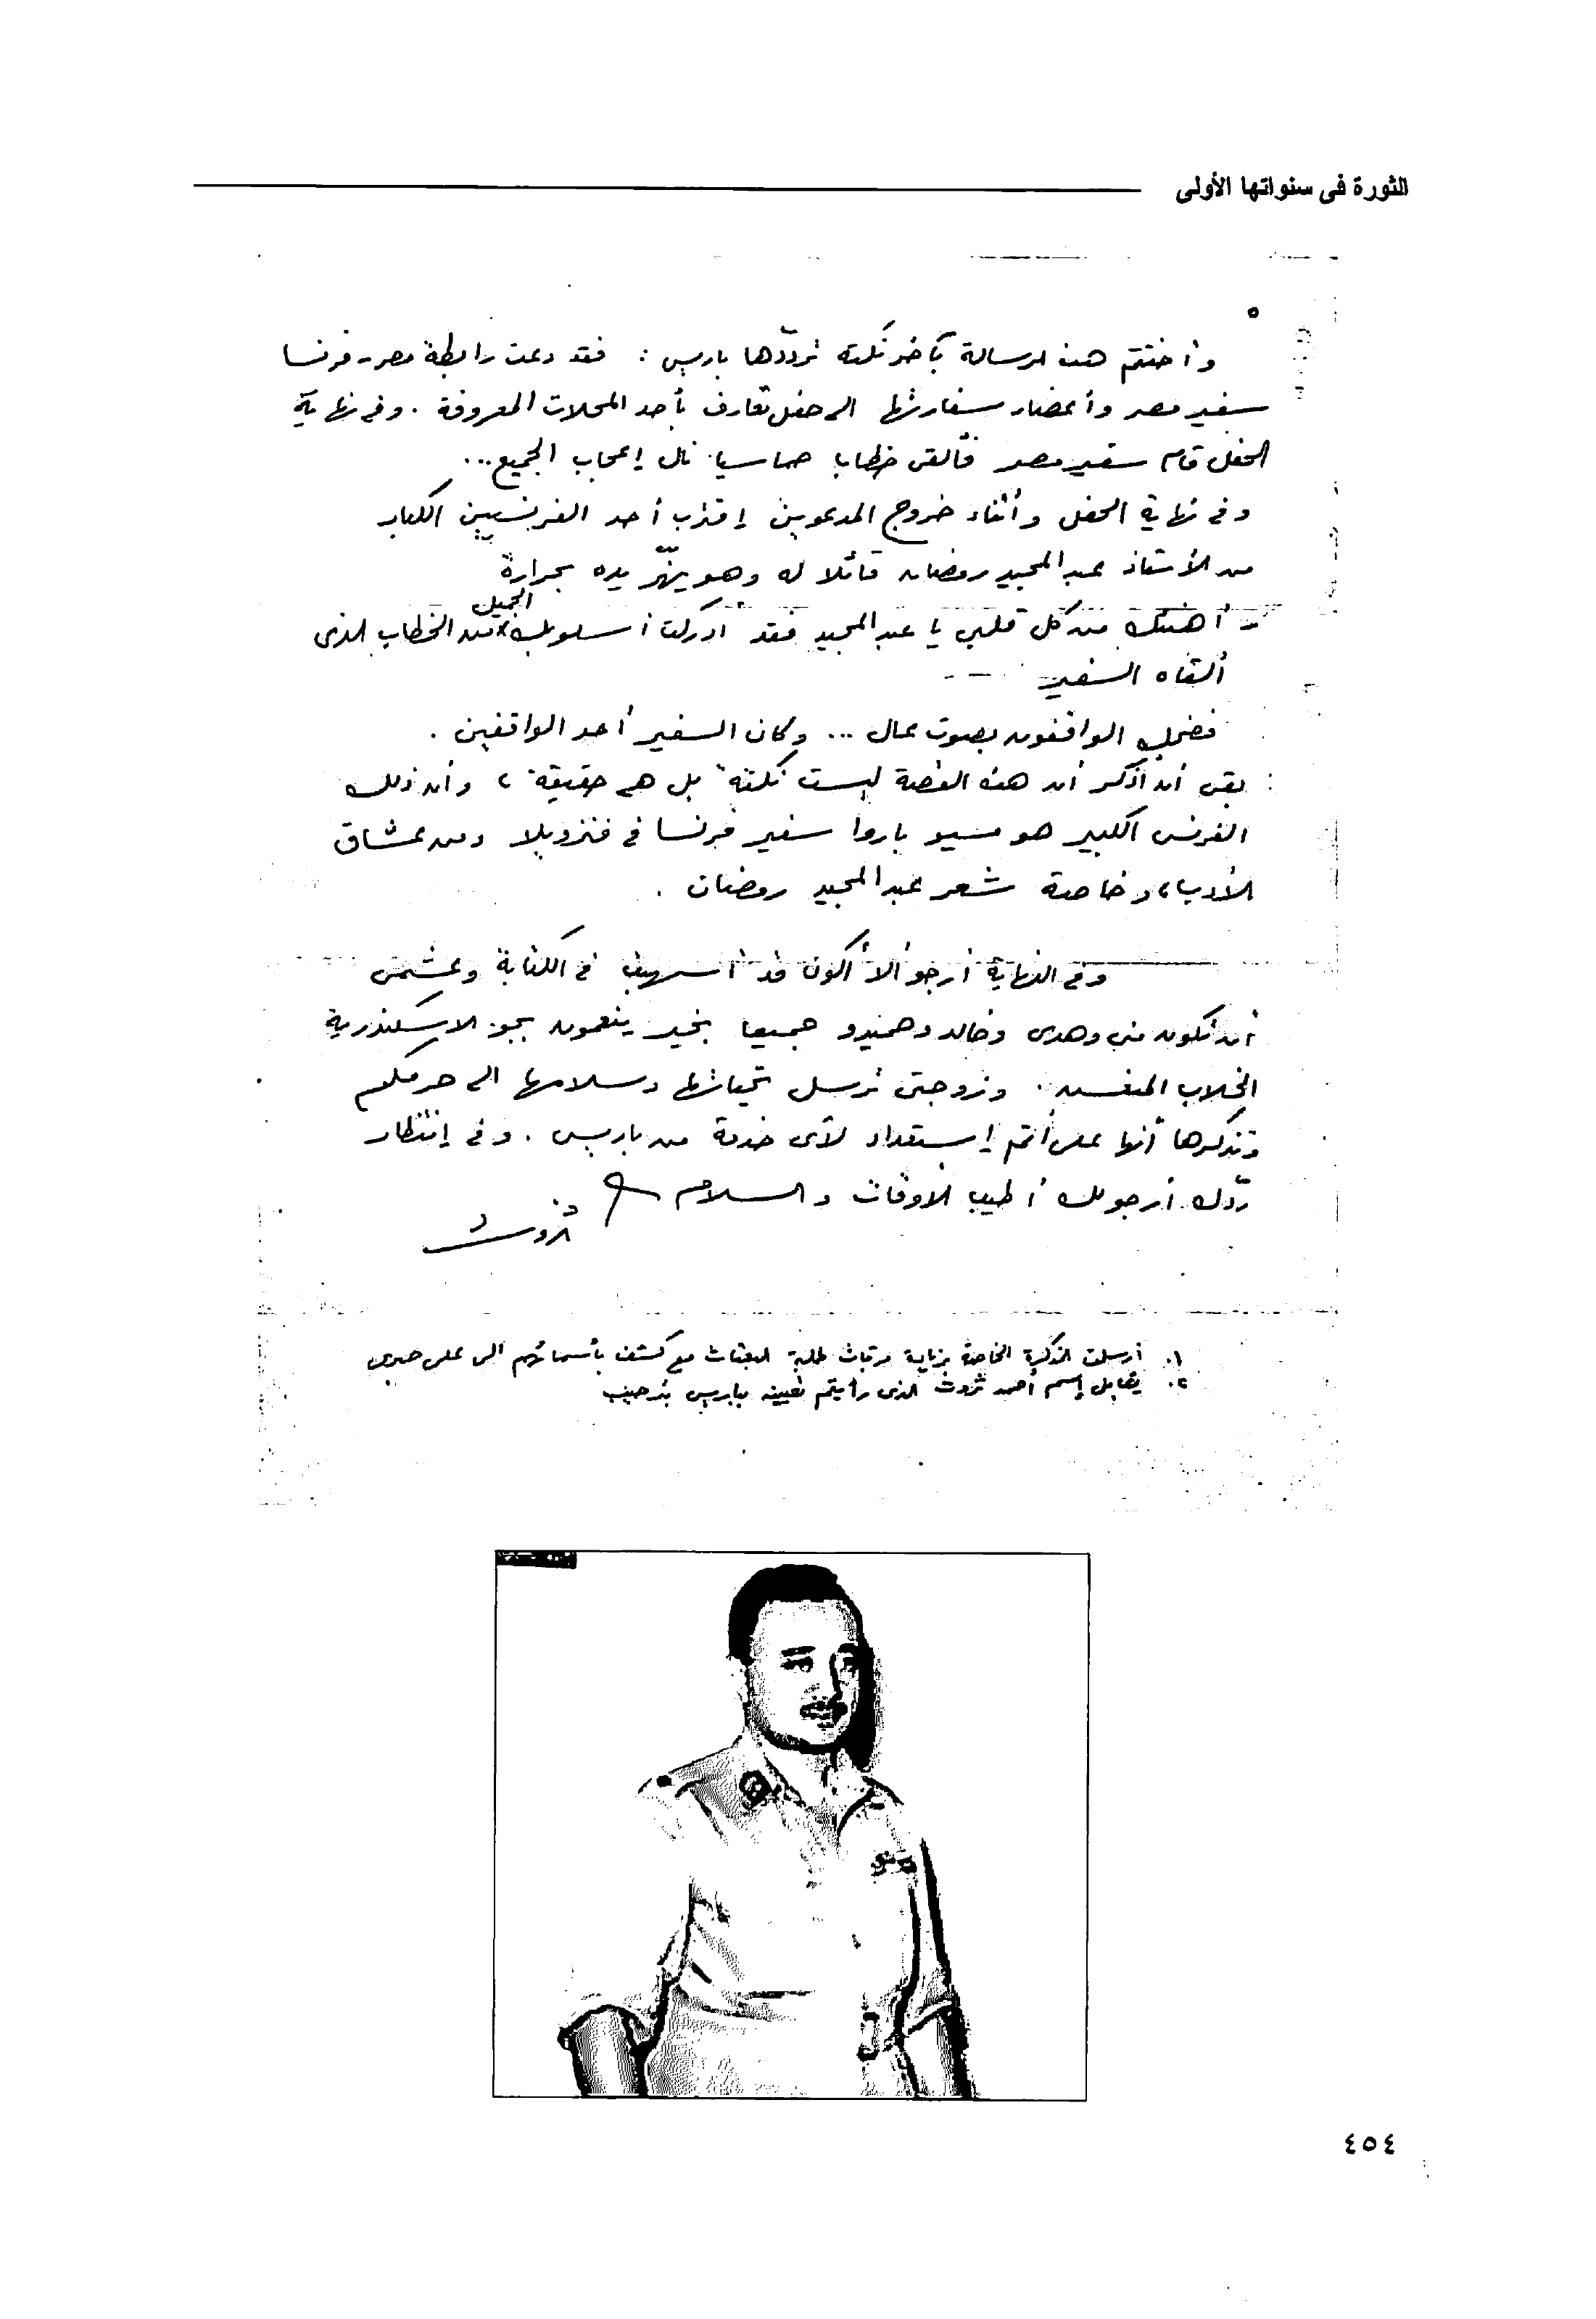 الثورة فى سنواتها الأولى
٥
وأختتم هذه الرسالة بآخر نكته تردّدها باريس : فقد دعت رابطة مصر - فرنسا
سفير مصر وأعضاء سفارتها الى حفل تعارف بأحد المحلات المعروفة . وفى نهاية
الحفل قام سفير مصر فألقى خطابا حماسيا نال إعجاب الجميع ...
وفى نهاية الحفل وأثناء خروج المدعوين إقترب أحد الفرنسيين الكبار
من الأستاذ عبد المجيد رمضان قائلا له وهو يهزّ يده بحرارة
- أهنئك من كل قلبى يا عبد المجيد فقد أدركت أسلوبك الجميل من الخطاب الذى
ألقاه السفير
فضحك الواقفون بصوت عال ... وكان السفير أحد الواقفين .
بقى أن أذكر أن هذه القصة ليست نكتة بل هى حقيقة ، وأن ذلك
الفرنسى الكبير هو مسيو باروا سفير فرنسا فى فنزويلا ومن عشاق
الأدب ، وخاصة شعر عبد المجيد رمضان .
وفى النهاية أرجو ألا أكون قد أسهبت فى الكتابة وعشمى
أن تكون منى وهدى وخالد وحميدو جميعا بخير ينعمون بجو الاسكندرية
الخلاب المنعش . وزوجتى ترسل تحياتها وسلامها الى حرمكم
وتذكرها أنها على أتم إستعداد لأى خدمة من باريس . وفى إنتظار
ردّك أرجو لك أطيب الأوقات والسلام
ثروت
١. أرسلت المذكرة الخاصة بزيادة مرتبات طلبة البعثات مع كشف بأسمائهم الى على صبرى
٢. يقابل إسم أحمد ثروت الذى رأيتم تعيينه بباريس بترحيب
٤٥٤